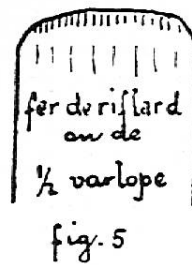 fer de riflard
ou de
½ varlope
fig. 5